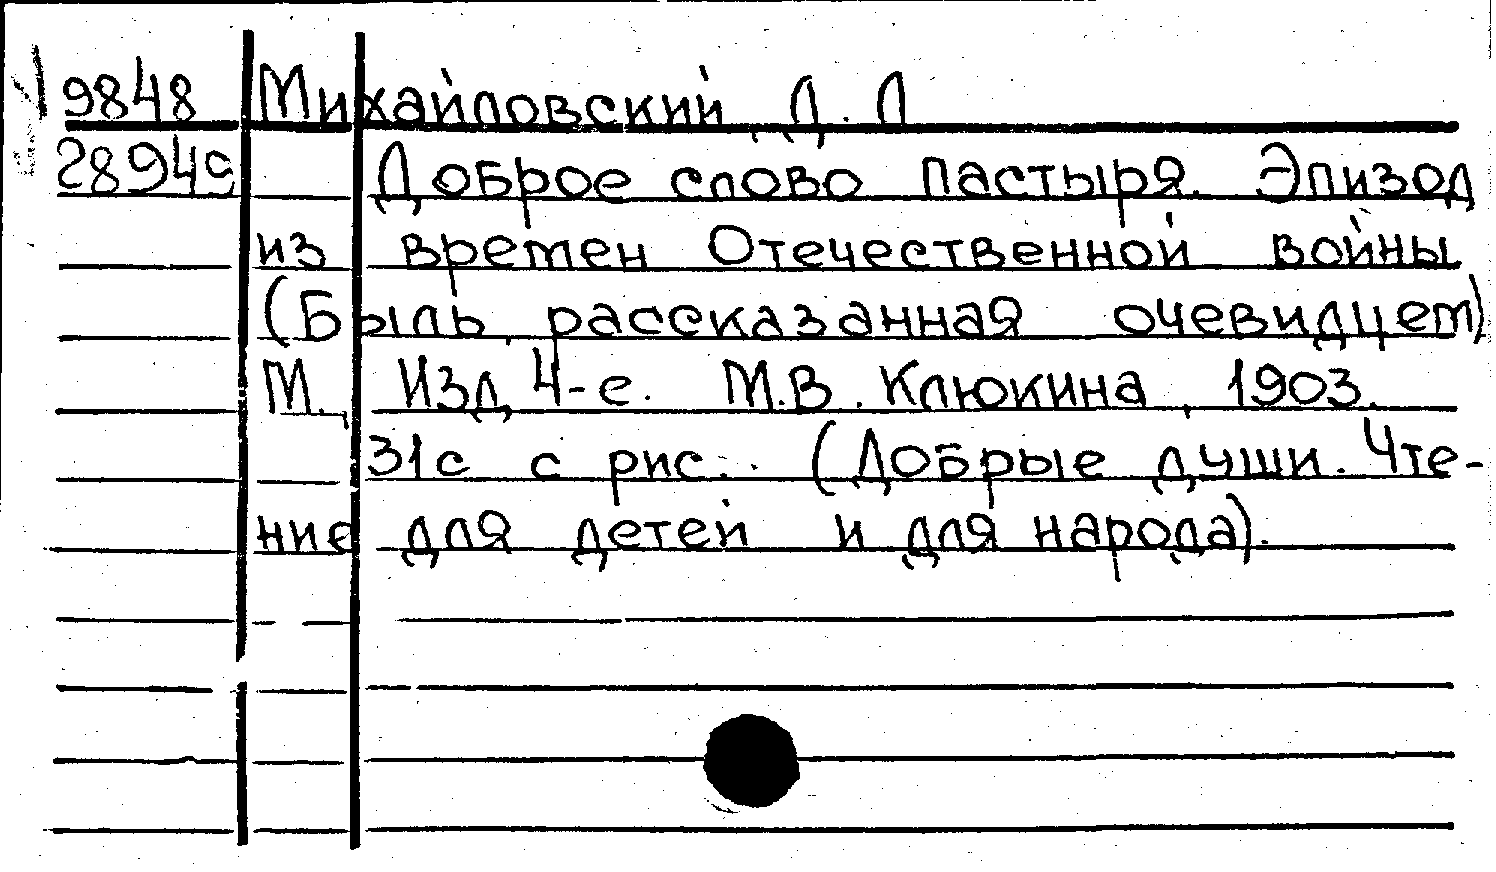 9848 Михайловский, Д. Л
28949 Доброе слово пастыря. Эпизод
из времен Отечественной войны
(Быль, рассказанная очевидцем)
М., Изд. 4-е. М.В. Клюкина, 1903.
31с с рис.. (Добрые души. Чте-
ние для детей и для народа).